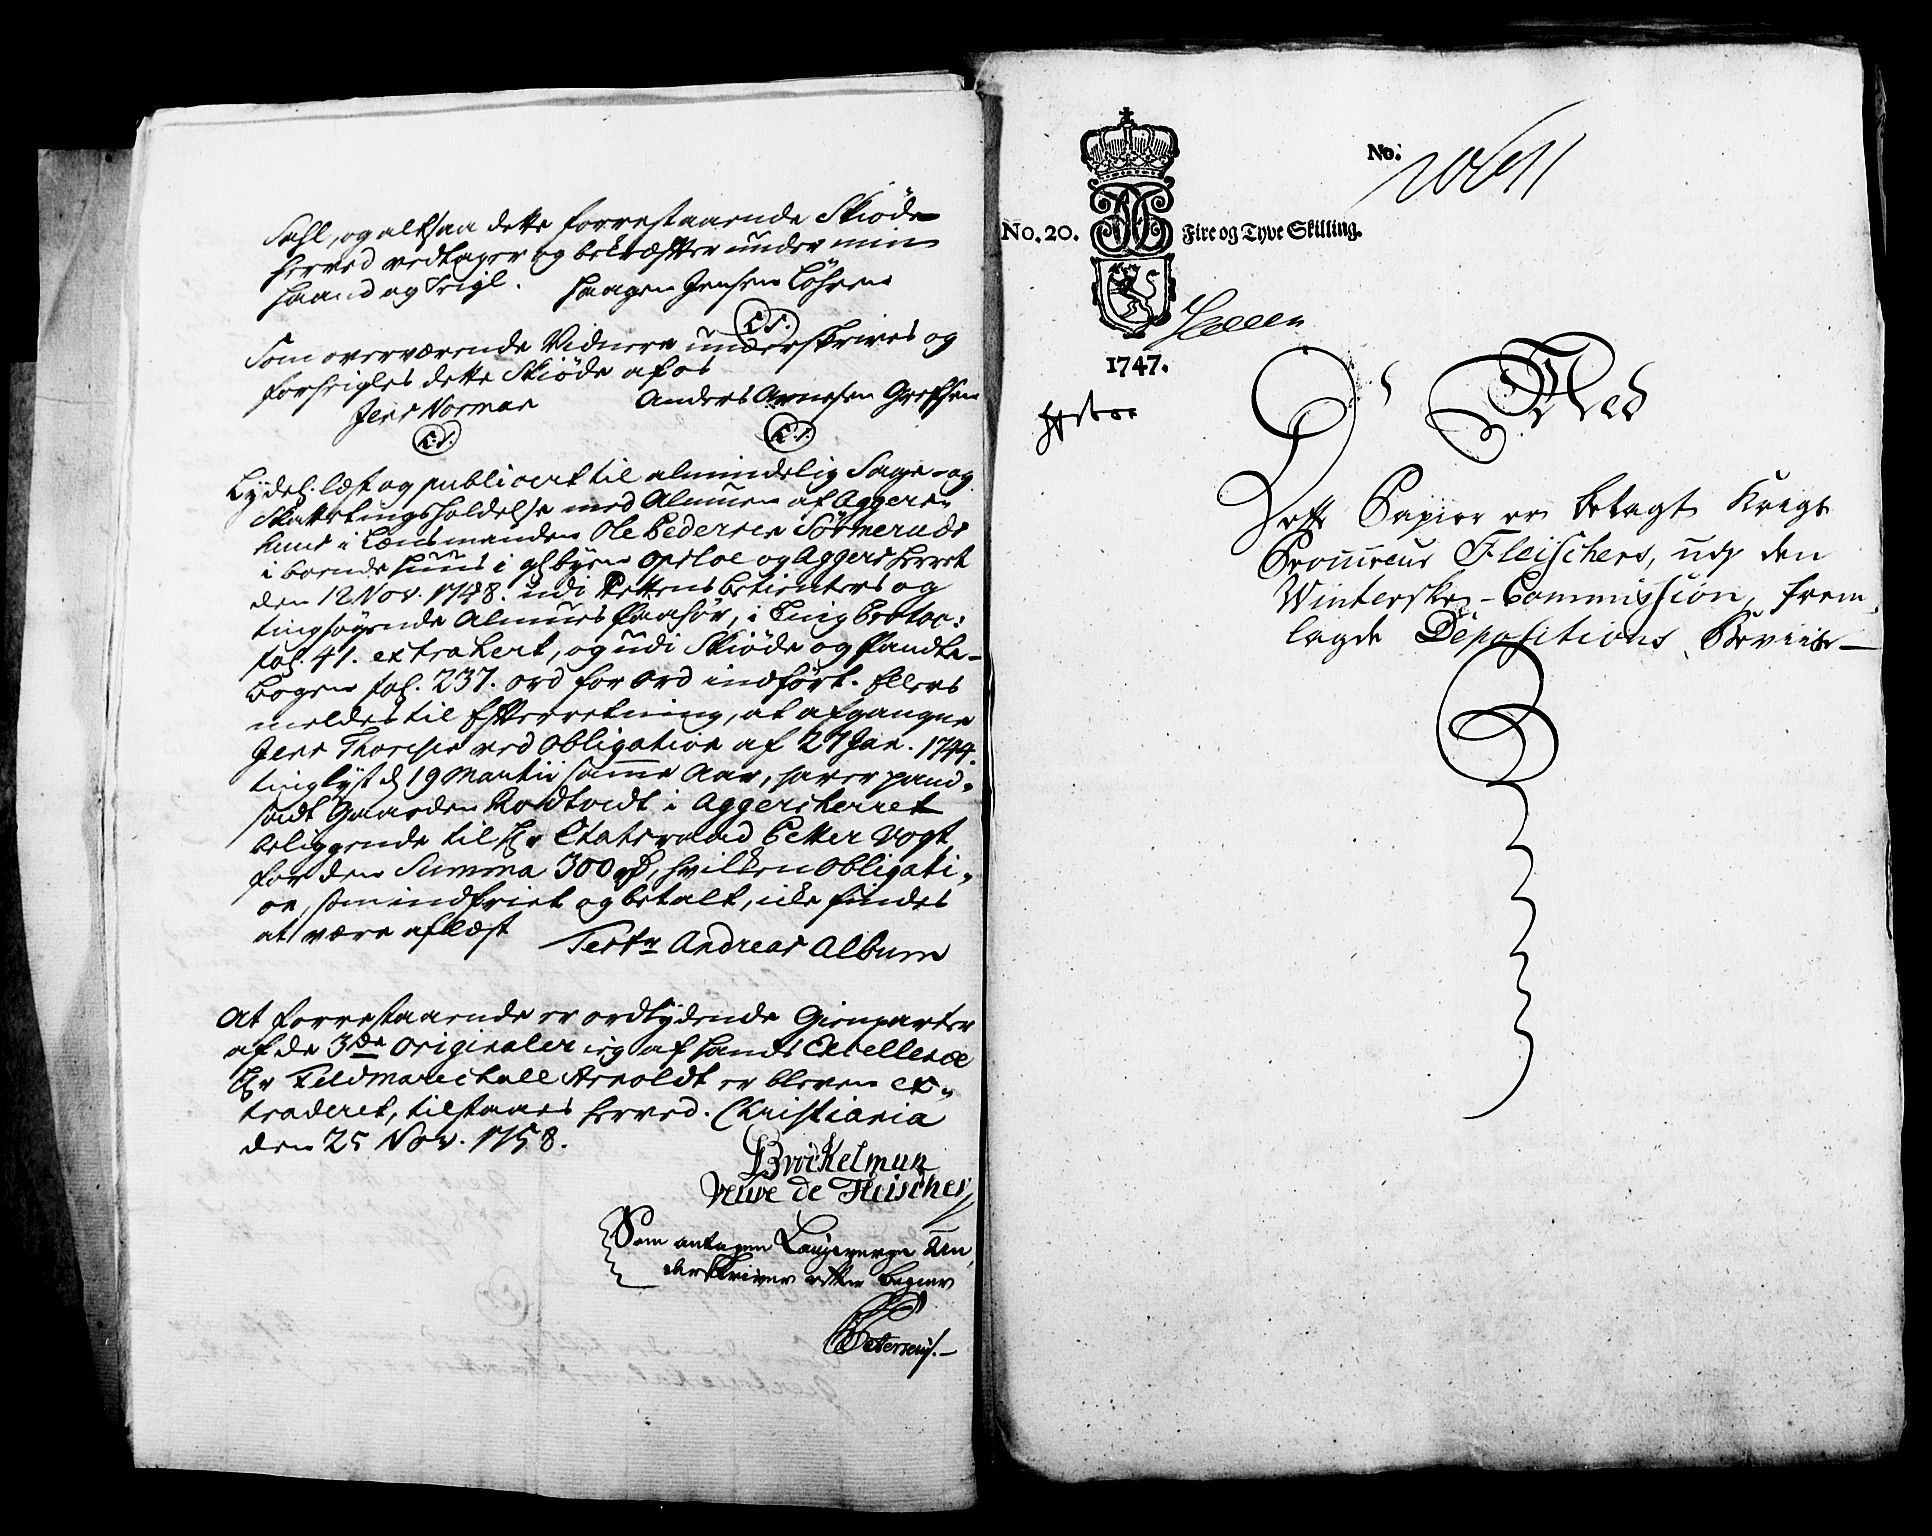 Sahl, og altsaa dette forrestaaende Skiøde
herved vedtager og bekræfter under min
Haand og Seigl. Haagen Jensen Löhren
(L.S.)
Som overværende Vidner underskrives og
forseigles dette Skiöde af os
Jens Norman Anders Arnesen Grefsen
(L.S.) (L.S.)
Lydel. læst og publicert til almindelig Sage- og
Skattetingsholdelse med Almuen af Aggers-
huus i Lænsmanden Ole Pedersen Sörneruds
i boende Huus i gl. byen Opsloe og Aggers Herret
den 12 Nov. 1748. udi Rettens betienters og
tingsøgende Almues Paahör, i Ting Protoc:
fol. 41. extrahert, og udi Skiøde og Pandte-
Bogen fol. 237. ord for ord indfört. Ellers
meldes til Efterretning, at afgangne
Jens Thoresen ved Obligation af 27 Jan. 1744.
tinglyst d. 19 Martii samme Aar, haver pand-
sadt Gaarden Rodtvedt i Aggersherret
beliggende til Hr Etatsraad Petter Vogt
for den Summa 300 rd, hvilken Obligati-
on, som indfriet og betalt, icke findes
at være aflæst Testr Andreas Album
At forrestaaende er ordlydende Gienparter
af de 3de Originaler ieg af Hands Excellence
Hr Feldmareschall Arnoldt er bleven ex-
traderet, tilstaaes herved. Christiania
den 25 Nov. 1758.
Bröckelman
Veuve de Fleischer
Som antagen Laugeverge un-
derskriver efter begier
Petersen
No.
No. 20. Fire og Tyve Skilling.
1747.
Med
Dette Papiir er betagt Krigs
Prommeus Fleischers, udj den
Winterske-Commission, frem-
lagde Depositions Beviis